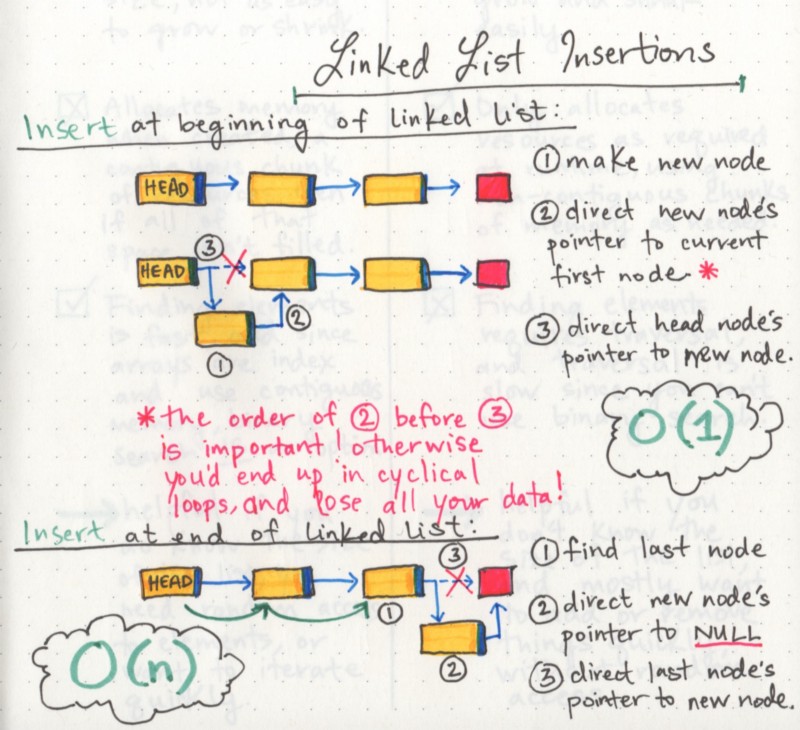 Linked List Insertions
Insert at beginning of linked list:
HEAD
① make new node
② direct new node's
pointer to current
first node *
③ direct head node's
pointer to new node.
③
HEAD
②
①
O(1)
* the order of ② before ③
is important; otherwise
you'd end up in cyclical
loops, and lose all your data!
Insert at end of linked list:
③
HEAD
①
②
① find last node
② direct new node's
pointer to NULL
③ direct last node's
pointer to new node.
O(n)